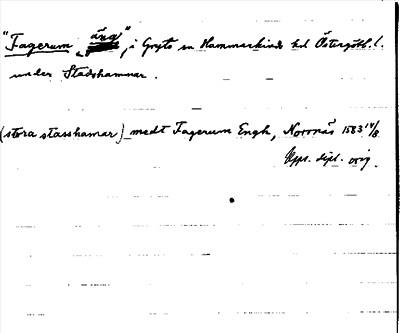 "Fagerum äng", i Gryts sn Hammarkinds hd Östergötl. l.
under Stadshammar.
(stora stasshamar) medt Fagerum Engh, Norrnäs 1583 14/8
Upps. dipl. orig.